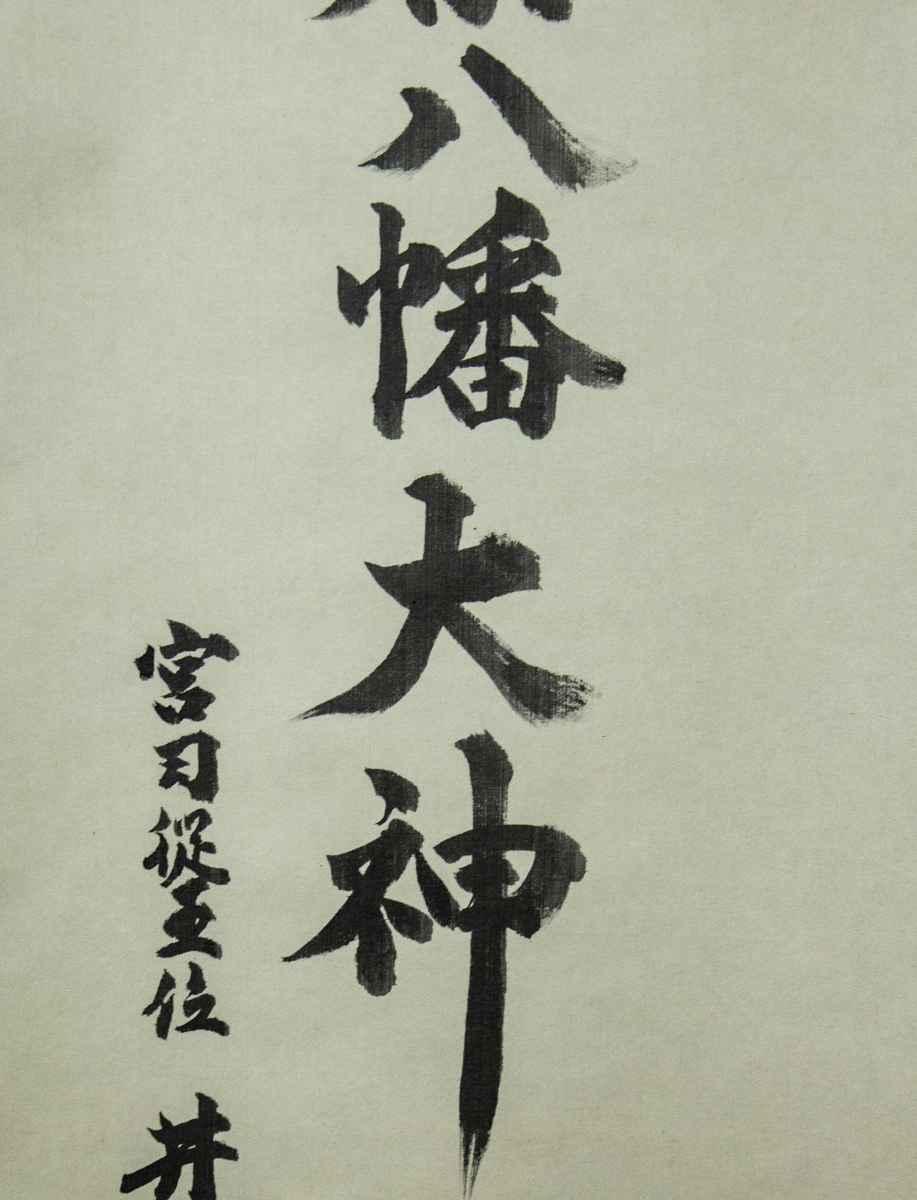 八幡大神
宮司從五位 井